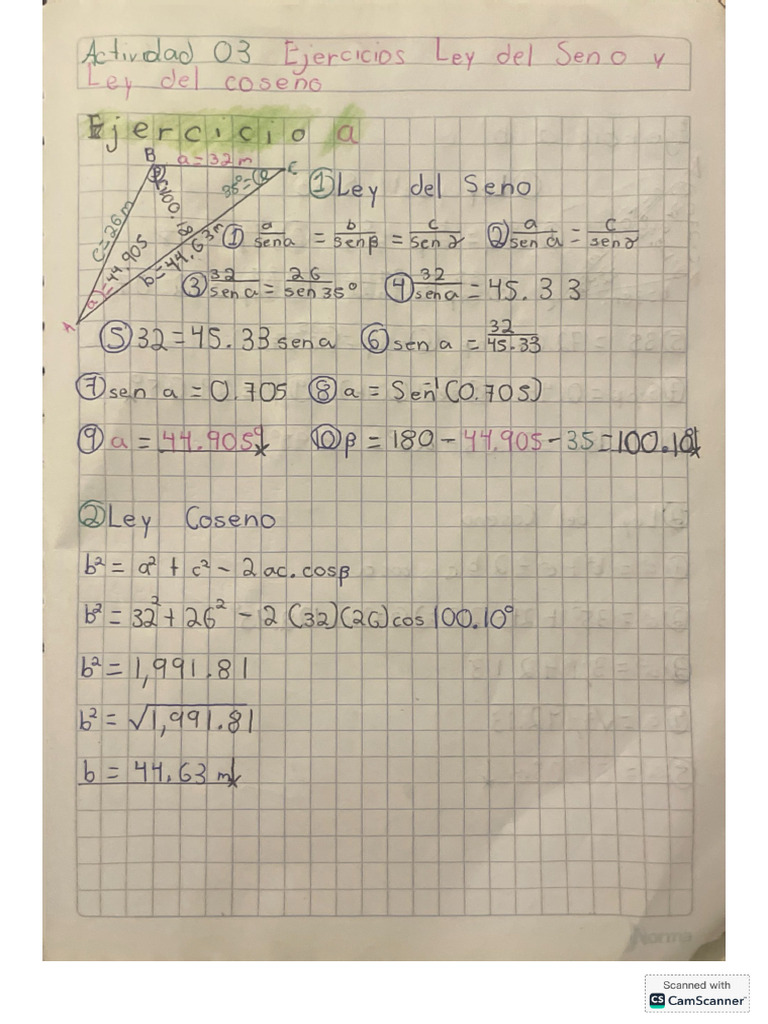 Actividad 03 Ejercicios Ley del Seno y
Ley del coseno
Ejercicio a
B a = 32 m C
35°
c = 26 m
100.18
b = 44.63 m
a = 44.905
A
① Ley del Seno
① a/sen a = b/sen β = c/sen γ ② a/sen a = c/sen γ
③ 32/sen a = 26/sen 35° ④ 32/sen a = 45.33
⑤ 32 = 45.33 sen a ⑥ sen a = 32/45.33
⑦ sen a = 0.705 ⑧ a = Sen⁻¹ (0.705)
⑨ a = 44.905° ⑩ β = 180 - 44.905 - 35 = 100.10
② Ley Coseno
b² = a² + c² - 2 ac. cos β
b² = 32² + 26² - 2 (32)(26) cos 100.10°
b² = 1,991.81
b² = √1,991.81
b = 44,63 m
Norma
Scanned with
CS CamScanner